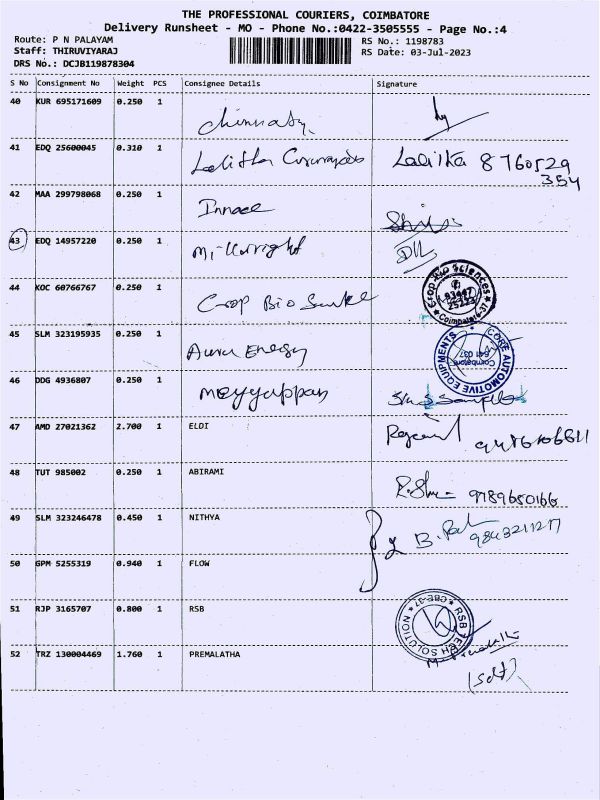 THE PROFESSIONAL COURIERS, COIMBATORE
Delivery Runsheet - MO - Phone No.:0422-3505555 - Page No.:4
Route: P N PALAYAM
RS No.: 1198783
Staff: THIRUVIYARAJ
RS Date: 03-Jul-2023
DRS No.: DCJB119878304
S No Consignment No Weight PCS Consignee Details Signature
40 KUR 695171609 0.250 1
41 EDQ 25600045 0.310 1 Lalitha Lalitka 8760529
354
42 MAA 299798068 0.250 1
43 EDQ 14957220 0.250 1
44 KOC 60766767 0.250 1 Crop Bio
Crop Bio Sciences
Coimbatore-37
45 SLM 323195935 0.250 1 Aura Energy
CORE AUTOMOTIVE EQUIPMENTS
Coimbatore
641 037
46 DDG 4936807 0.250 1 Meyyappan
47 AMD 27021362 2.700 1 ELDI
48 TUT 985002 0.250 1 ABIRAMI 9789650166
49 SLM 323246478 0.450 1 NITHYA B.
50 GPM 5255319 0.940 1 FLOW
51 RJP 3165707 0.800 1 RSB
RSB TECH SOLUTION
CBE-37
52 TRZ 130004469 1.760 1 PREMALATHA